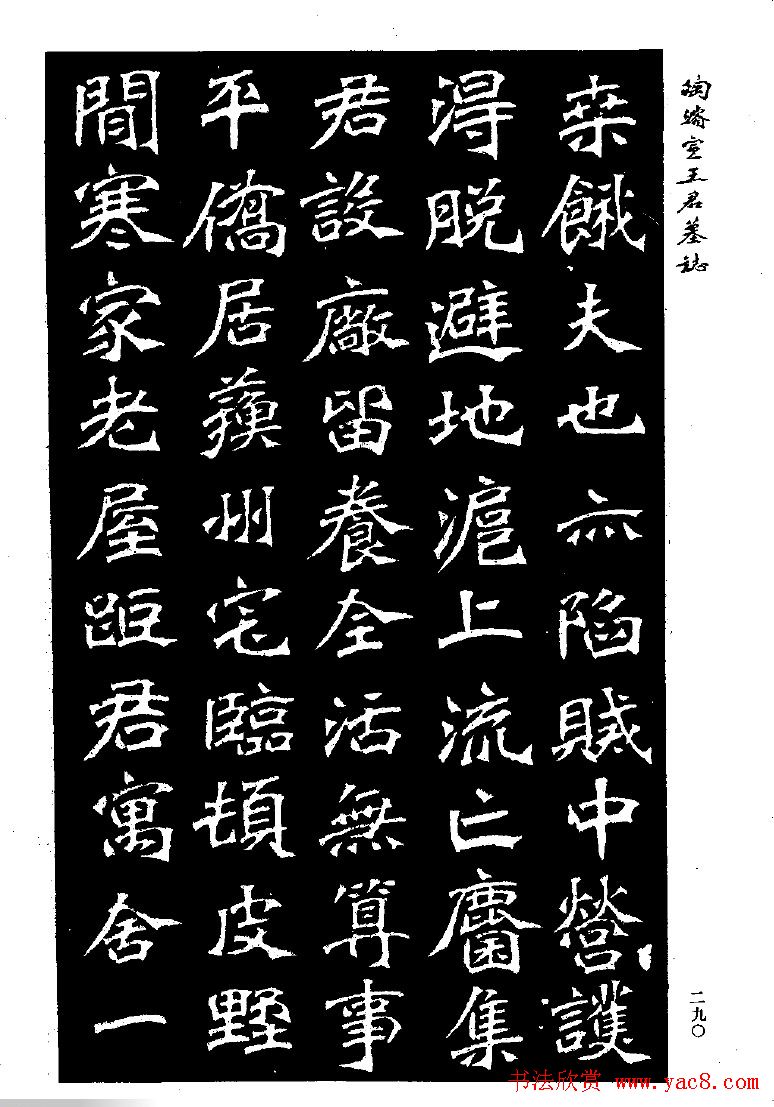 陶濬宣王君墓誌
桒餓夫也亦陷賊中營護
淂脫避地滬上流亡麕集
君設廠留養全活無算事
平僑居蘓州宅臨頓皮墅
間寒家老屋距君寓舍一
二九〇
书法欣赏 www.yac8.com